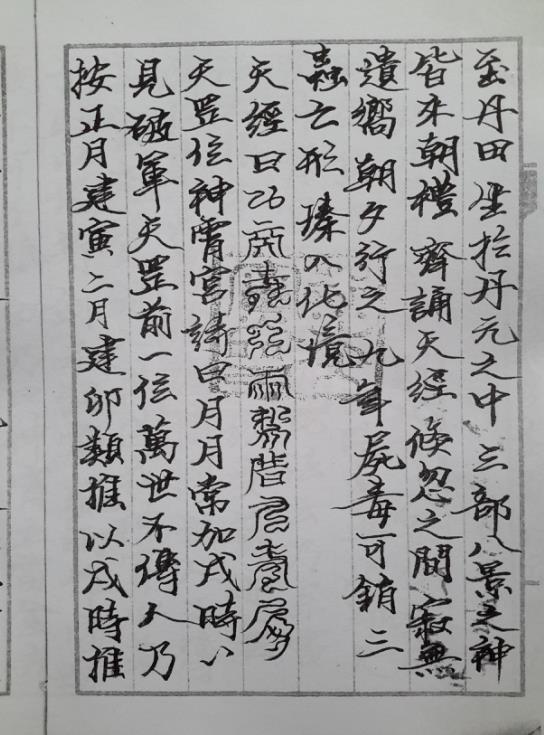 至丹田坐於丹元之中三部八景之神
皆來朝禮齊誦天經倐忽之間寂無
遺嚮朝夕行之九年屍毒可銷三
蟲亡形臻入化境
天經曰
天罡位神霄宮詩曰月月常加戌時時
見破軍天罡前一位萬世不傳人乃
按正月建寅二月建卯類推以戌時推